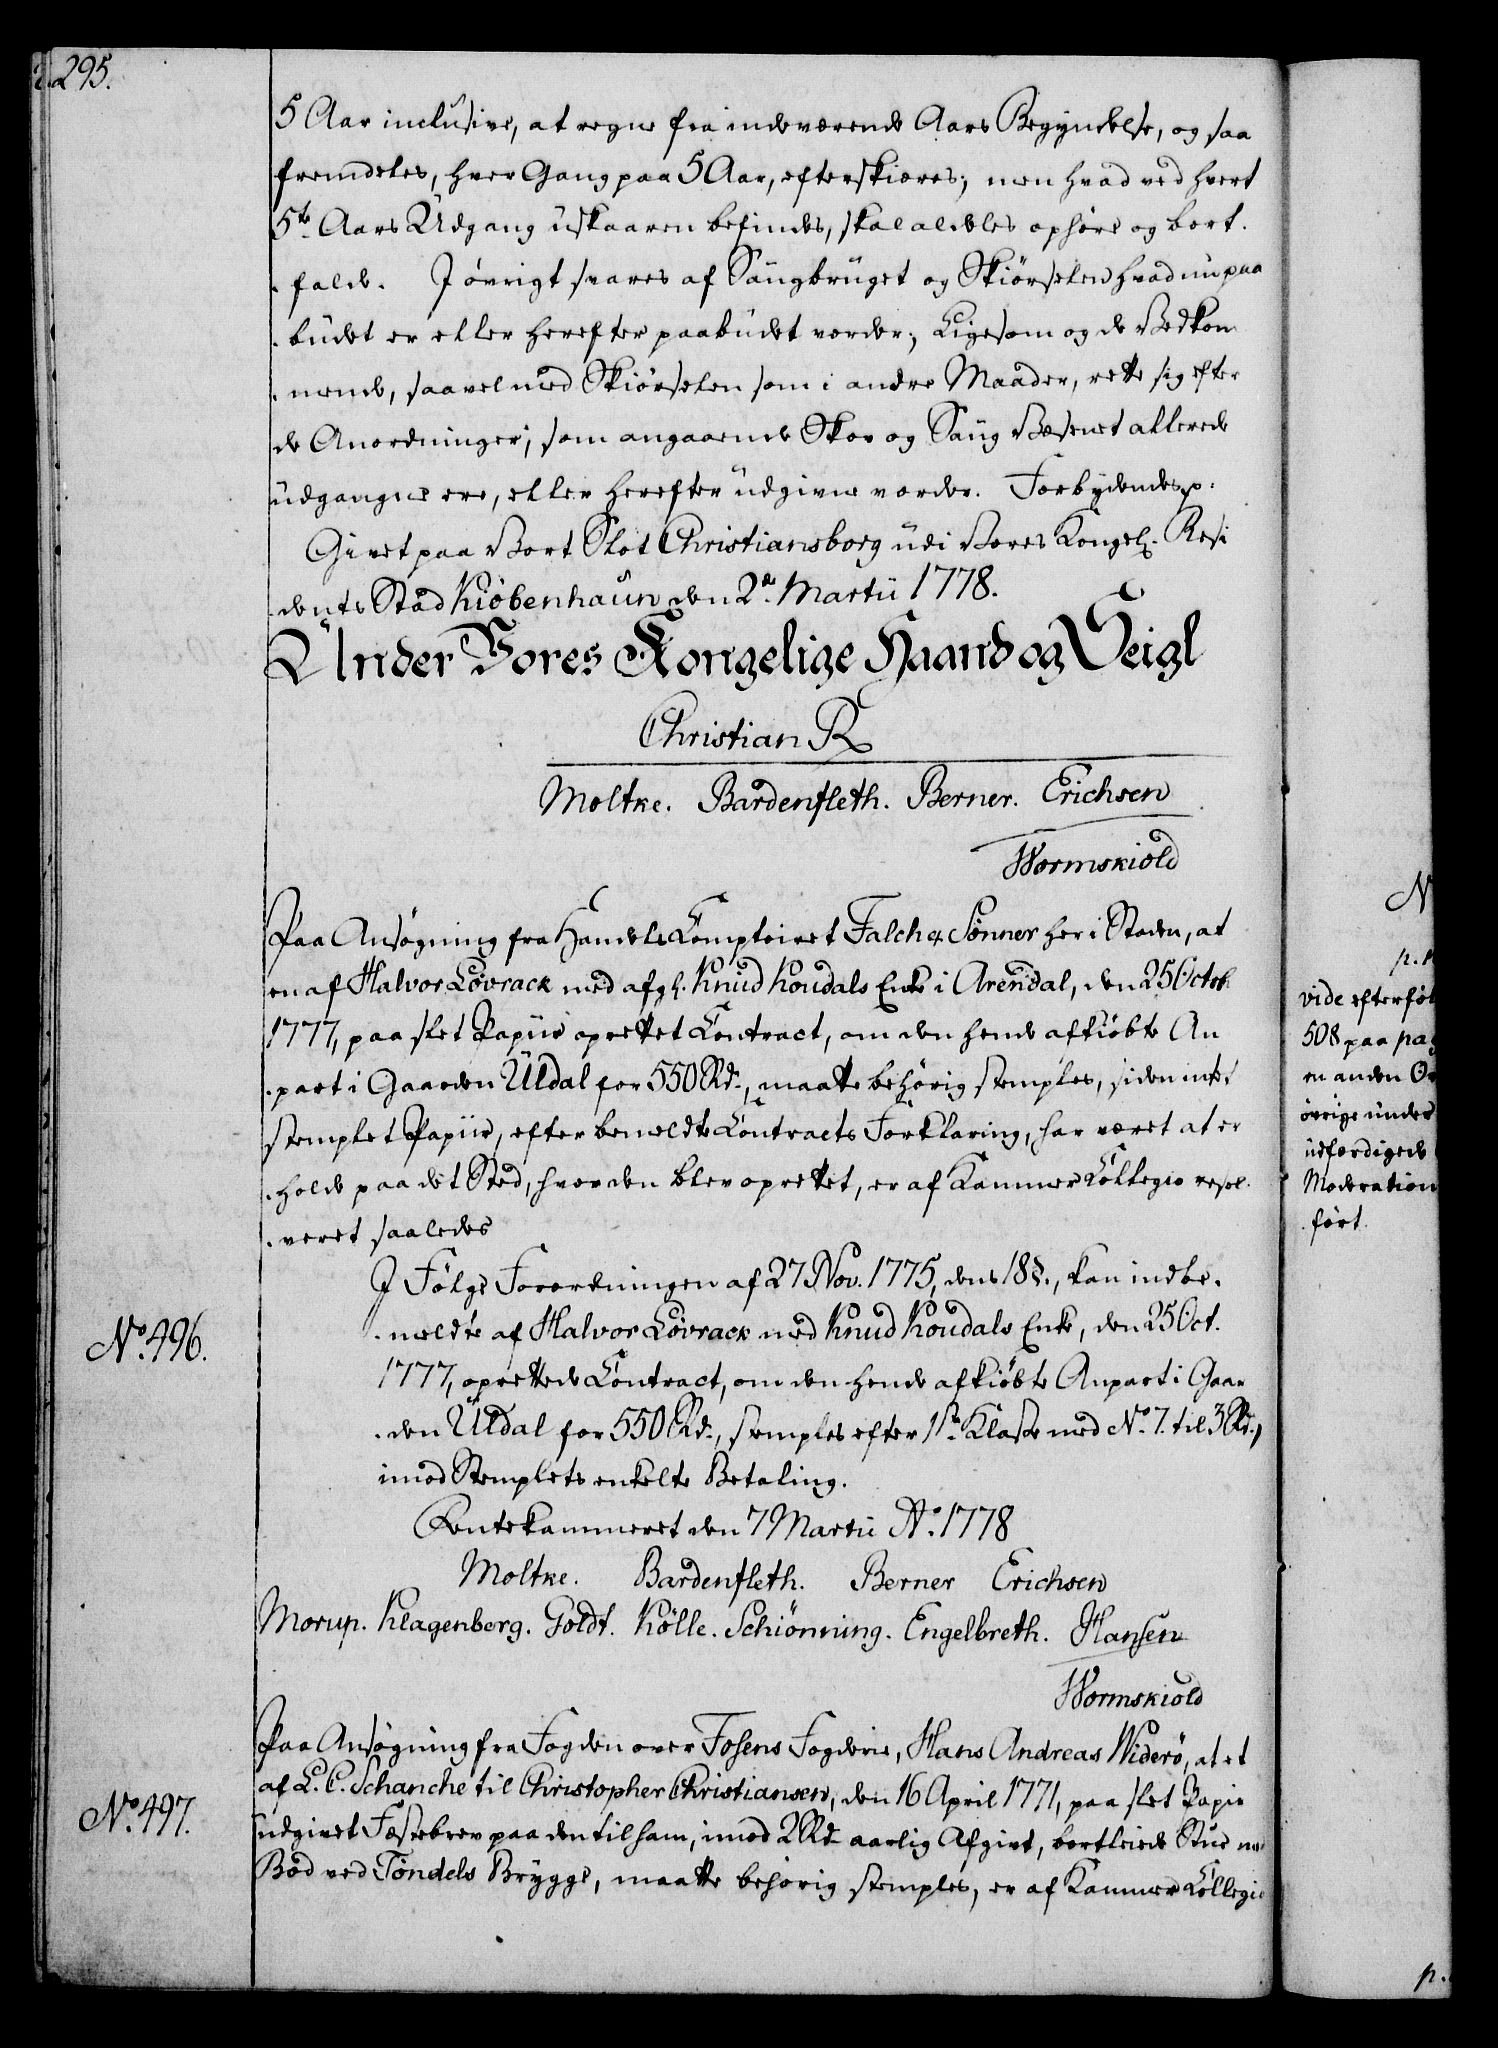 295.
5 Aar inclusive, at regne fra indeværende Aars Begyndelse, og saa
fremdeles, hver Gang paa 5 Aar, efterskiæres; men hvad ved hvert
5te Aars Udgang uskaaren befindes, skal aldeles ophøre og bort.
. falde. I øvrigt svares af Saugbruget og Skiørselen hvad nu paa
. budet er eller herefter paabudet vorder; Ligesom og de Vedkom
. mende, saavel med Skiørselen som i andre Maader, rette sig efter
de Anordninger, som angaaende Skov og Saug Væsenet allerede
udgangne ere, eller herefter udgivne vorder. Forbydendes p.
Givet paa Vort Slot Christiansborg udi Vores Kongel. Resi
. dents Stad Kiøbenhaun den 2de Martii 1778.
Under Vores Kongelige Haand og Seigl
Christian R
Moltke. Bardenfleth. Berner. Erichsen
Wormskiold
Paa Ansøgning fra Handels Comptoiret Falch & Sønner her i Staden, at
en af Halvor Løvrack med afg. Knud Koudals Enke i Arendal, den 25 Octob.
1777, paa slet Papiir oprettet Contract, om den hende afkiøbte An
. part i Gaarden Uldal for 550 Rd., maatte behørig stemples, siden intet
stemplet Papiir, efter bemeldte Contracts Forklaring, har været at er
. holde paa det Sted, hvor den blev oprettet, er af Kammer Collegio resol.
. veret saaledes
No. 496.
I Følge Forordningen af 27 Nov. 1775, dens 18 §., kan indbe.
. meldte af Halvor Løvrack med Knud Koudals Enke, den 25 Oct.
1777, oprettede Contract, om den hende afkiøbte Anpart i Gaar
. den Uldal for 550 Rd., stemples efter 1ste Klasse med No. 7. til 3 Rd.,
imod Stemplets enkelte Betaling.
Rentekammeret den 7 Martii Ao. 1778
Moltke. Bardenfleth. Berner Erichsen
Morup. Klagenberg. Goldt. Kølle. Schiønning. Engelbreth. Hansen
Wormskiold
No. 497.
Paa Ansøgning fra Fogden over Fosens Fogderie, Hans Andreas Widerø, at et
af L. C. Schanche til Christopher Christiansen, den 16 April 1771, paa slet Papir
udgivet Fæstebrev paa den til ham, imod 2 Rd aarlig Afgivt, bortleiede Stue med
Bod ved Tøndels Brygge, maatte behørig stemples, er af Kammer Collegio
N
vide efterføl
508 paa pag
en anden Or
øvrige under
udfærdigede
Moderation
. ført.
p.